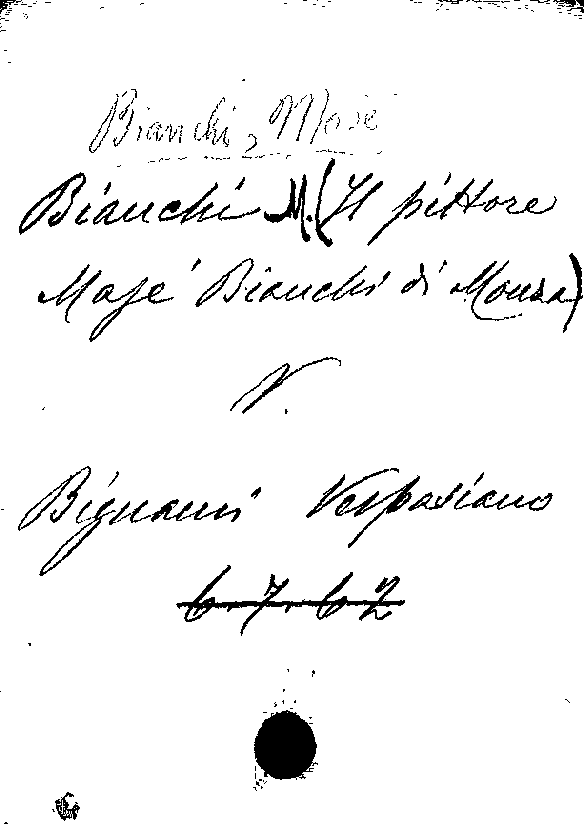 Bianchi, Mosè
Bianchi M. (Il pittore
Mosè Bianchi di Monza)
V.
Bignami Vespasiano
6.7.6 2